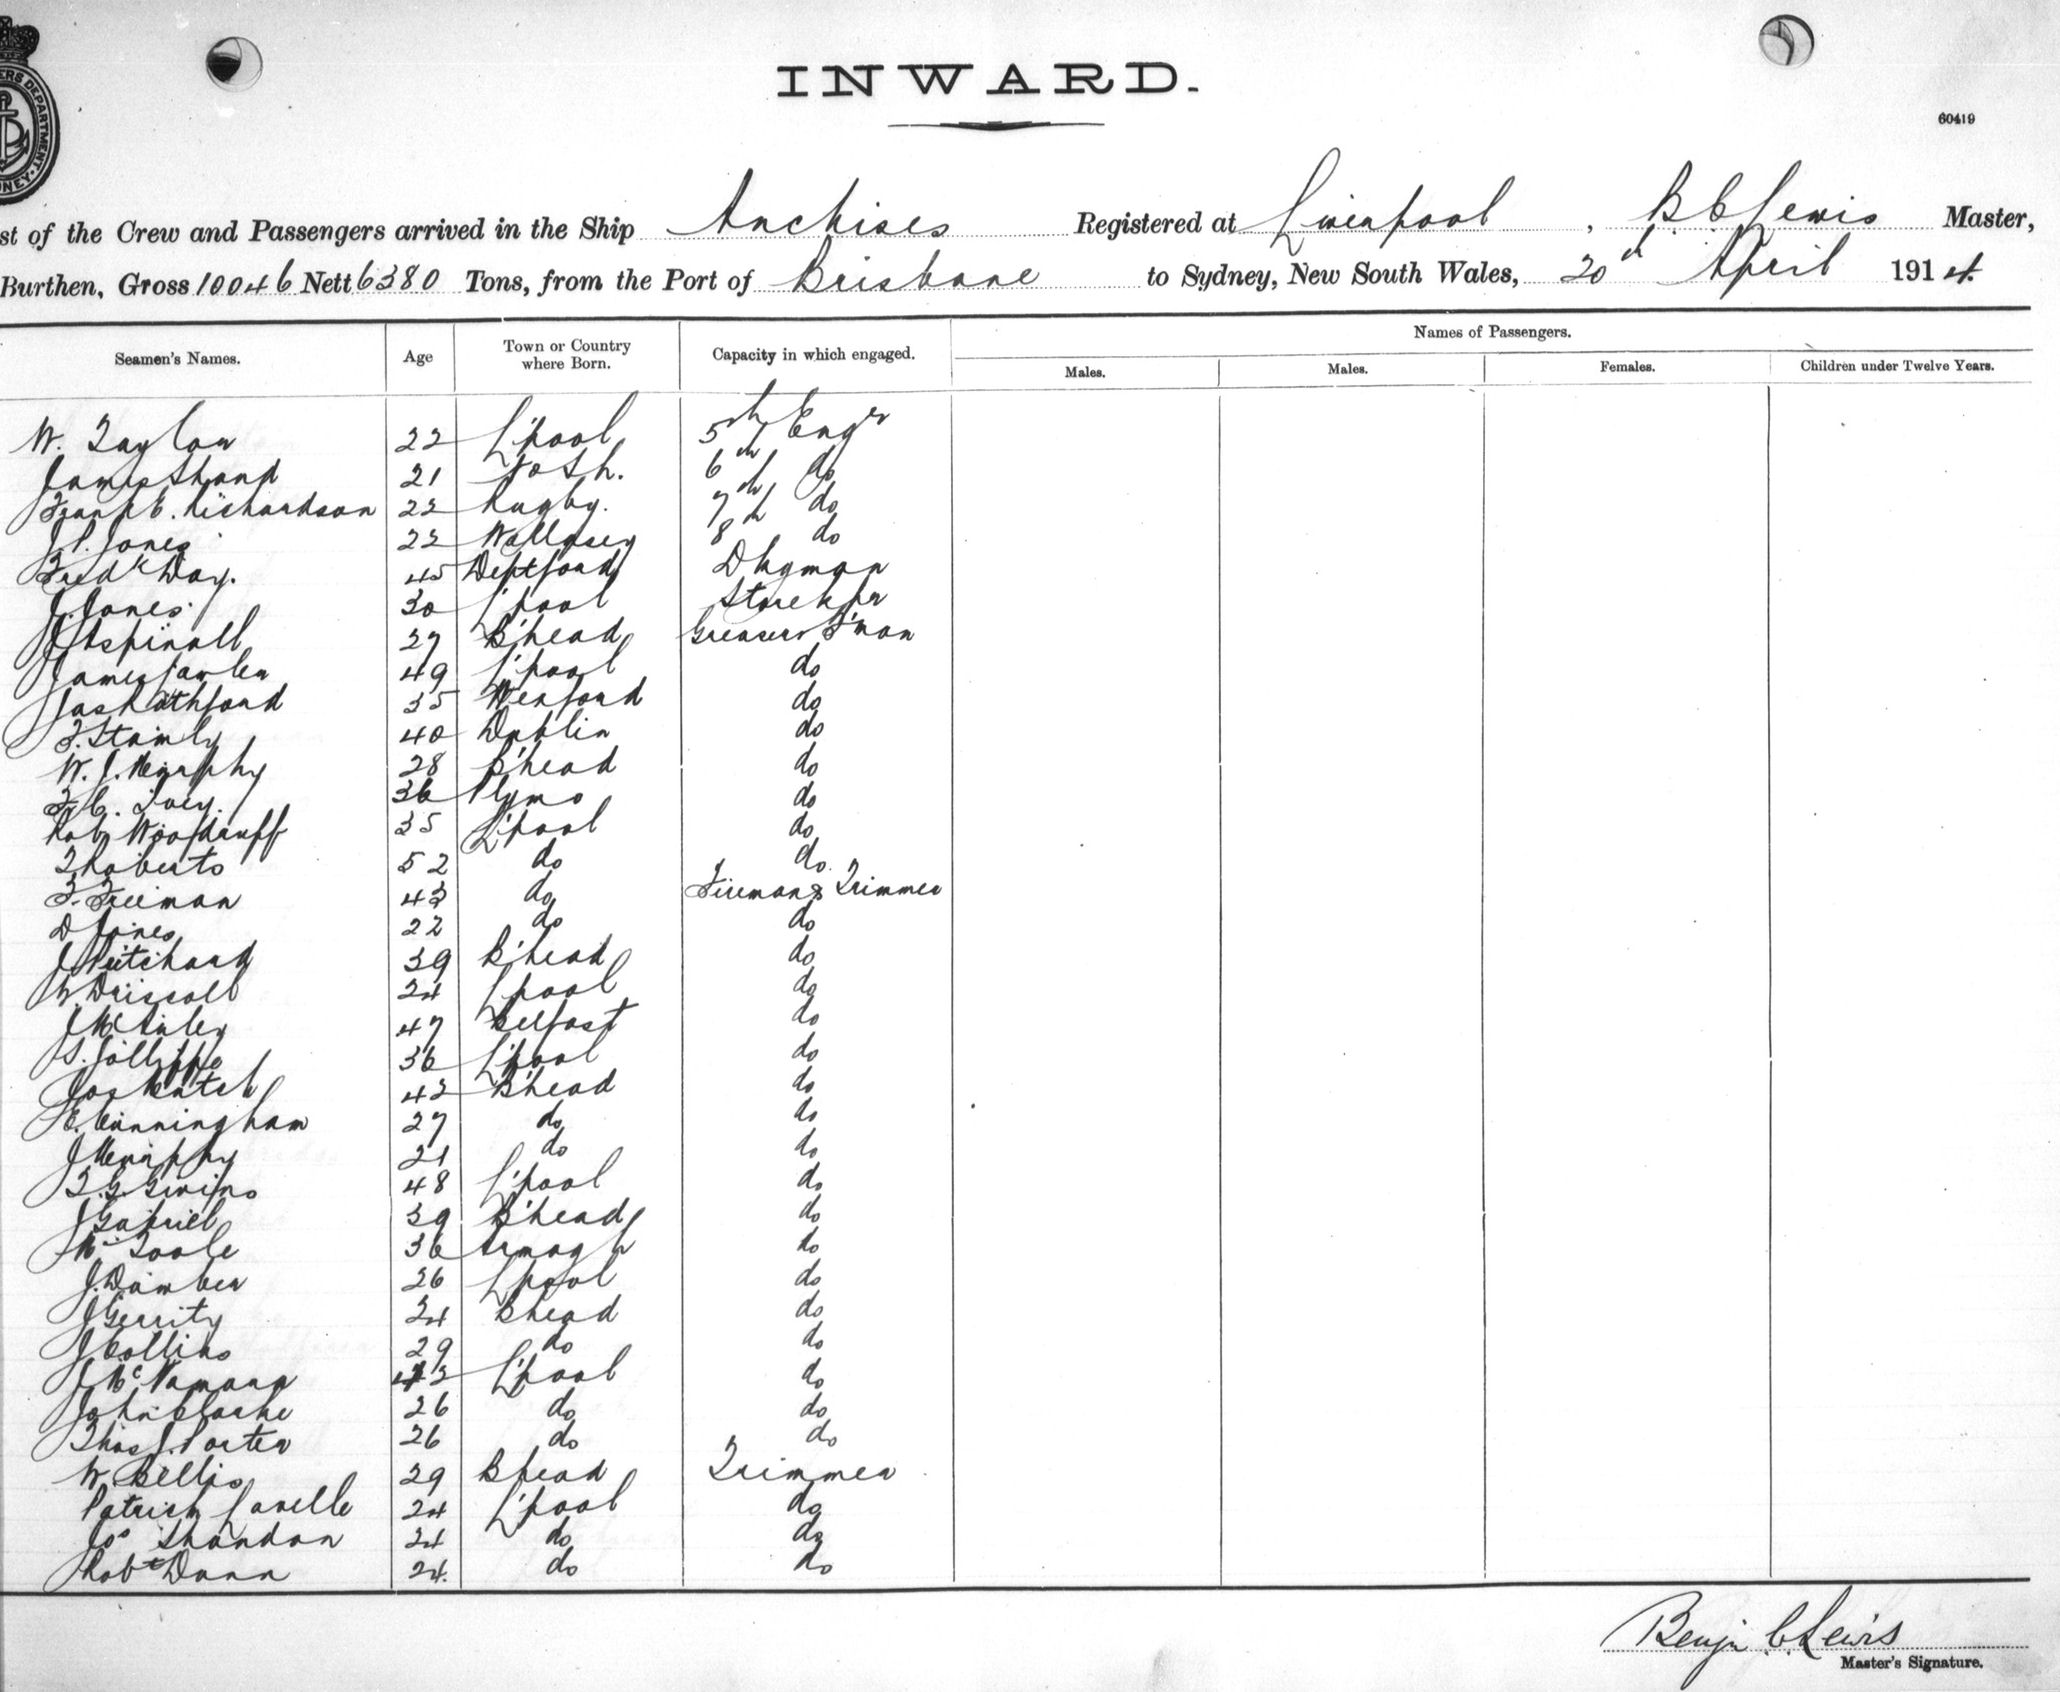 INWARD.
60419
ERS DEPARTMENT.
NEY
st of the Crew and Passengers arrived in the Ship Anchises Registered at Liverpool, B C Lewis Master,
Burthen, Gross 10046 Nett 6380 Tons, from the Port of Brisbane to Sydney, New South Wales, 20th April 1914.
Seamen's Names. Age Town or Country where Born. Capacity in which engaged. Names of Passengers.
Males. Males. Females. Children under Twelve Years.
W. Taylor 22 L'pool 5th Engr
James Shand 21 6th do
Frank E. Richardson 22 Rugby. 7th do
J. P. Jones 22 Wallasey 8th do
Fredk Day. 45 Deptford Dkyman
J. Jones 30 L'pool Storekpr
J Aspinall 27 B'head Greaser F'man
James Lawler 49 L'pool do
Jas Rathford 35 Wexford do
40 Dublin do
W. J. Murphy 28 B'head do
36 Plymo do
Rob Woodruff 35 L'pool do
T Roberts 52 do do
F. Freeman 43 do Fireman & Trimmer
D Jones 22 do do
J Pritchard 39 B'head do
Driscoll 24 L'pool do
47 Belfast do
S. Jolliffe 36 L'pool do
Jos 42 B'head do
E. Cunningham 27 do do
J Murphy 21 do do
48 L'pool do
J Gabriel 39 B'head do
Toole 36 Armagh do
J. Damber 26 L'pool do
J Gerrity 24 B'head do
J Collins 29 do do
J McNamara 43 L'pool do
John Clarke 26 do do
Thos J. Porter 26 do do
W. Bellis 29 B'head Trimmer
Patrick Lavelle 24 L'pool do
Jos Shandon 21 do do
Robt Dunn 24. do do
Benjn C Lewis
Master's Signature.